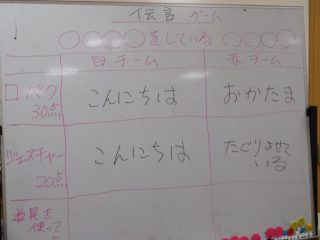 伝言ゲーム
○○○○をしている○○○○
白チーム 赤チーム
口パク こんにちは おかたま
30点
ジェスチャー こんにちは
20点 いる
道具を
使って